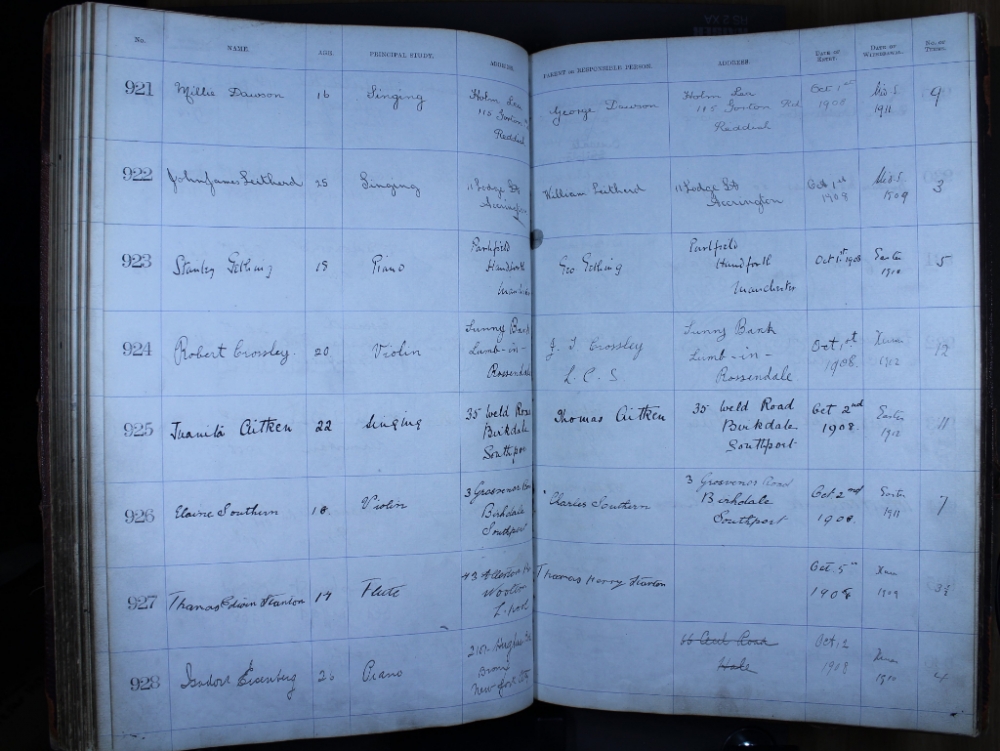 No. NAME. AGE. PRINCIPAL STUDY. ADDRESS. PARENT OR RESPONSIBLE PERSON. ADDRESS. DATE OF ENTRY. DATE OF WITHDRAWAL. NO. OF TERMS.
921 Millie Dawson 16 Singing Holm Lea George Dawson Holm Lea Oct 1st 9
115 Gorton 115 Gorton Rd 1908 1911
Reddish Reddish
922 John James 25 Singing 11 Lodge St William 11 Lodge St Oct 1st 3
Accrington Accrington 1908 1909
923 Stanley Gething Piano Parkfield Geo Gething Parkfield Oct 1st 1908 Easter 5
Handforth Handforth 1910
Manchester Manchester
924 Robert Crossley 20 Violin Sunny Bank J. T Crossley Sunny Bank Oct 1st Xmas 12
Lumb-in- L. C. S Lumb-in- 1908. 1912
Rossendale Rossendale
925 Juanita Aitken 22 Singing 35 Weld Road Thomas Aitken 35 Weld Road Oct 2nd Easter 11
Birkdale Birkdale 1908. 1912
Southport Southport
926 Elaine Southern 18 Violin 3 Grosvenor Charles Southern 3 Grosvenor Road Oct 2nd Easter 7
Birkdale Birkdale 1908. 1911
Southport Southport
927 Thomas Edwin Stanton Flute 43 Allerton Thomas Henry Stanton Oct. 5th Xmas
Woolton 1908 1909
L.pool
928 Isidor Eisenberg 26 Piano Hughes Oct 2 Xmas 4
Bronx 1908 1910
New York City